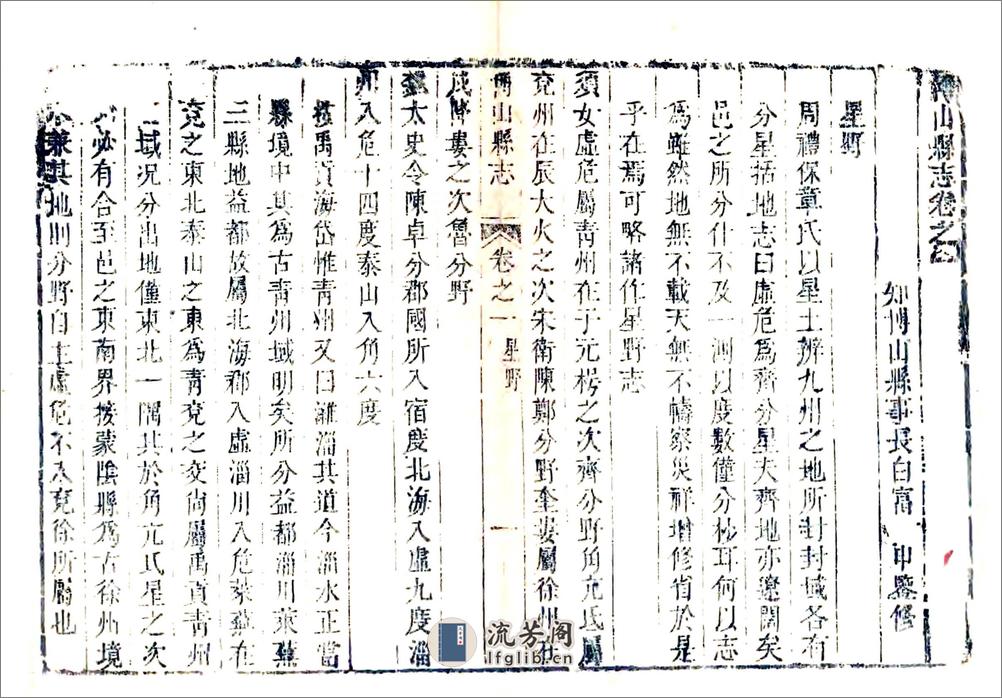 博山縣志卷之一
知博山縣事長白富申鑒修
星野
周禮保章氏以星土辨九州之地所封封域各有
分星括地志曰虛危爲齊分星夫齊地亦遼闊矣
邑之所分什不及一測以度數僅分杪耳何以志
爲雖然地無不載天無不幬察災祥增修省於是
乎在焉可略諸作星野志
須女虛危屬青州在子元枵之次齊分野角亢氐屬
兖州在辰大火之次宋衛陳鄭分野奎婁屬徐州在
博山縣志 卷之一 星野 一
戌降婁之次魯分野
太史令陳卓分郡國所入宿度北海入虛九度淄
川入危十四度泰山入角六度
按禹貢海岱惟青州又曰濰淄其道今淄水正當
縣境中其爲古青州域明矣所分益都淄川萊蕪
三縣地益都故屬北海郡入虛淄川入危萊蕪在
兖之東北泰山之東爲青兖之交尙屬禹貢青州
域況分出地僅東北一隅其於角亢氐星之次
必有合至邑之東南界接蒙陰縣爲古徐州境
兼其地則分野自主虛危不入兖徐所屬也
流芳阁
lfglib.cn